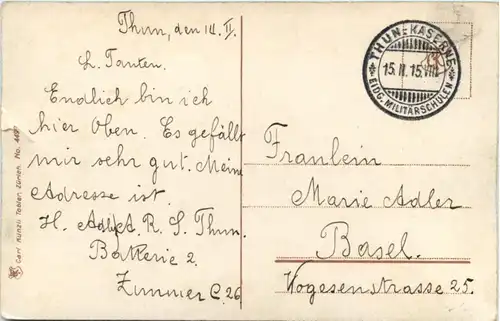 Thun, den 14. II.
L. Tanten.
Endlich bin ich
hier Oben. Es gefällt
mir sehr gut. Meine
Adresse ist.
H. A. R. S. Thun.
Batterie 2.
Zimmer C 26
THUN-KASERNE
15. II. 15. VIII
EIDG. MILITÄRSCHULEN
Fraulein
Marie Adler
Basel.
Vogesenstrasse 25.
Carl Künzli-Tobler, Zürich. No.